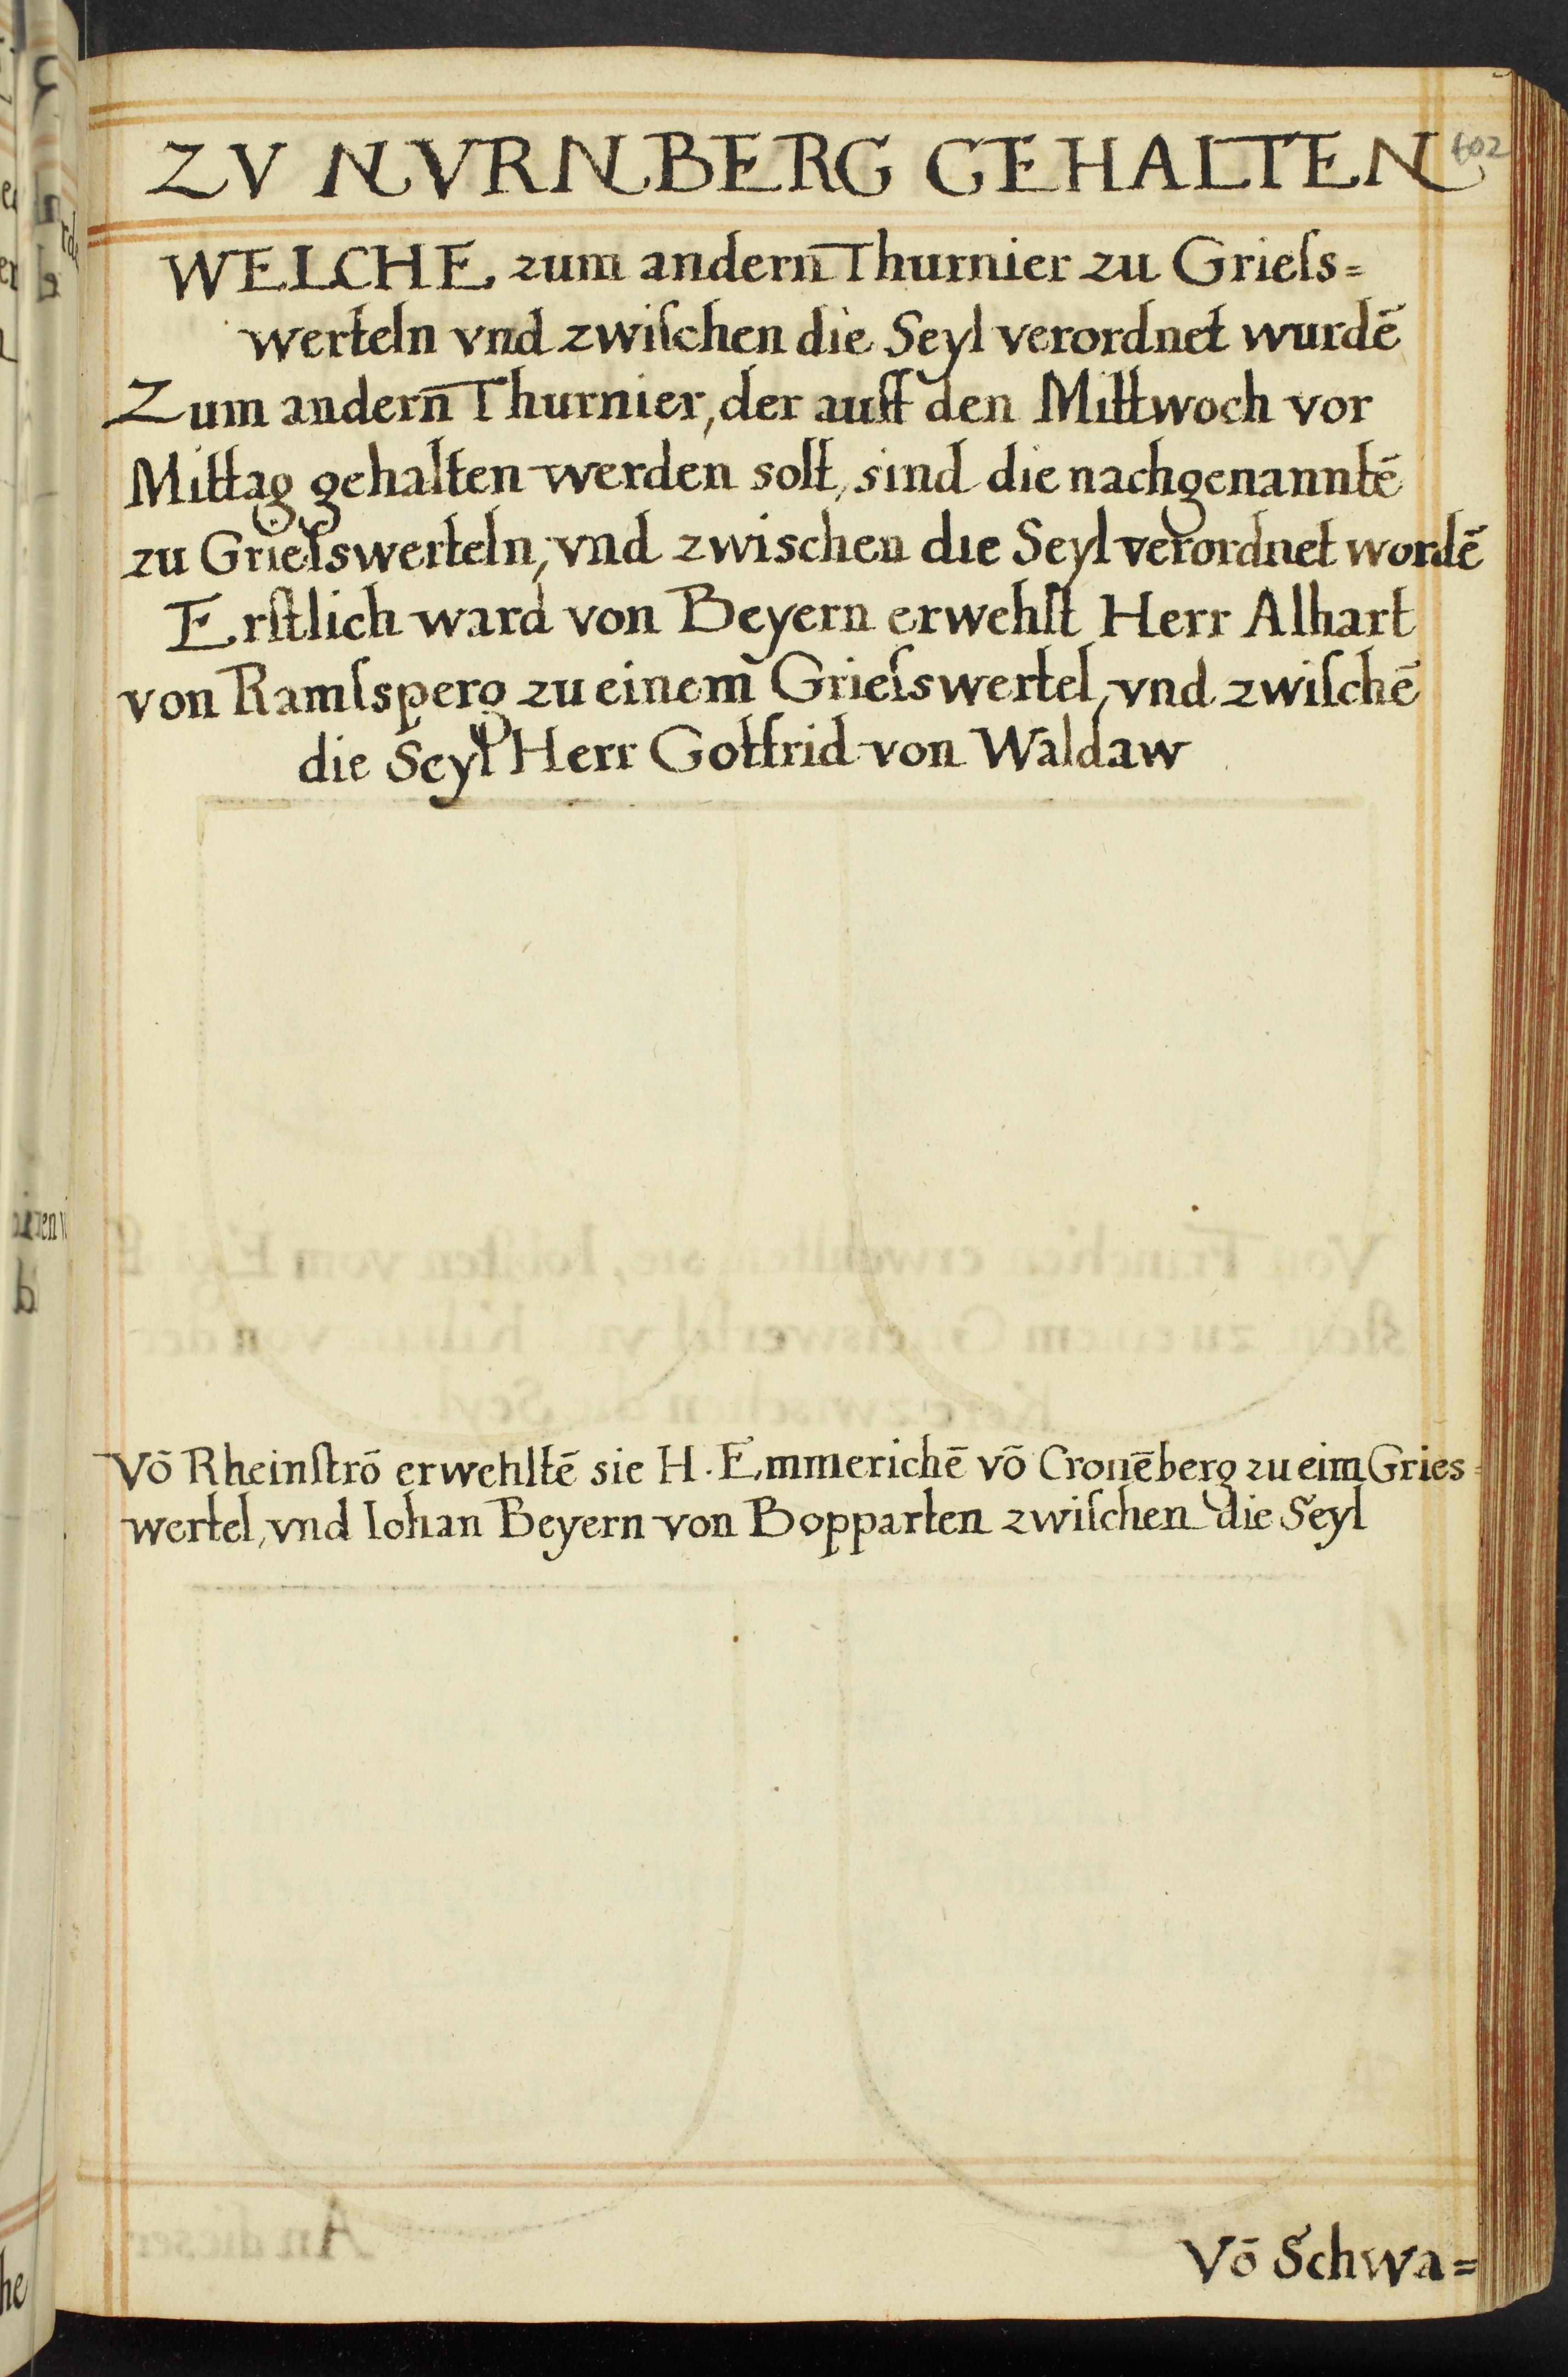 ZV NVRNBERG GEHALTEN
602
WELCHE zum andern̄ Thurnier zu Grieſs=
werteln vnd zwiſchen die Seyl verordnet wurdē
Zum andern̄ Thurnier, der auff den Mittwoch vor
Mittag gehalten werden solt, sind die nachgenanntē
zu Grieſswerteln, vnd zwischen die Seyl verordnet wordē
Erſtlich ward von Beyern erwehlt Herr Alhart
von Ramſsperg zu einem̄ Grieſswertel, vnd zwiſchē
die Seyl Herr Gotfrid von Waldaw
Vō Rheinſtrō erwehltē sie H. Emmerichē vō Cronēberg zu eim Gries=
wertel, vnd Iohan Beyern von Bopparten zwiſchen die Seyl
Vō Schwa=